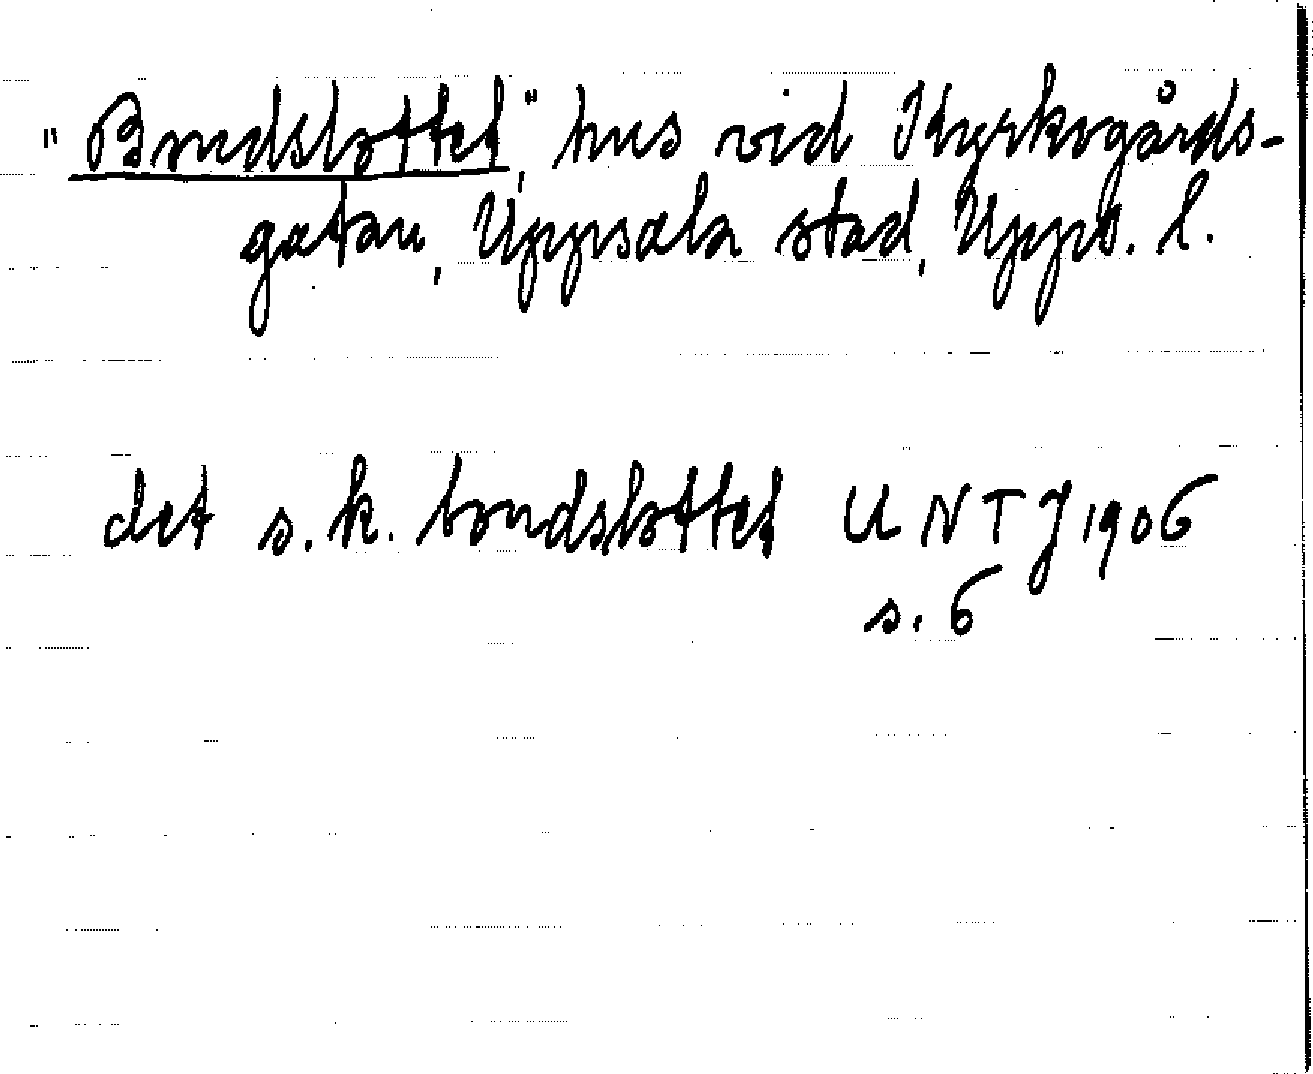 "Bondslottet", hus vid Kyrkogårds-
gatan, Uppsala stad, Upps. l.
det s.k. bondslottet UNTJ 1906
s. 6